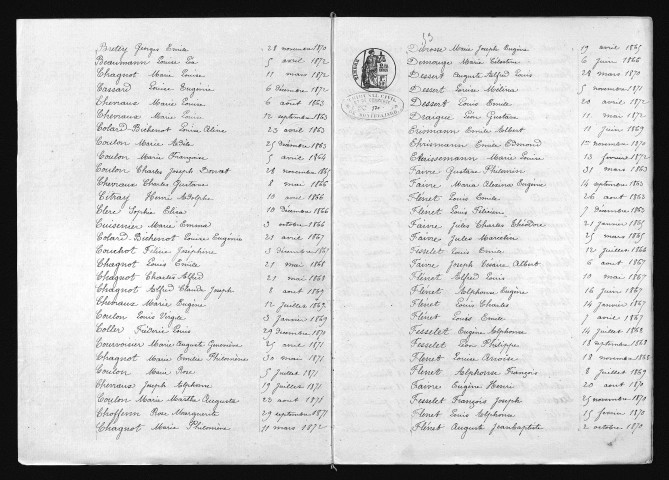 Bretey Georges Emile 28 novembre 1870
Beaumann Louise Léa 5 avril 1872
Chagnot Marie Louise 11 mars 1872
Cassard Louise Eugénie 6 Décembre 1872
Chevaux Marie Louise 6 août 1863
Chevaux Marie Louise 12 septembre 1863
Colard-Bichenot Louise Aline 23 avril 1863
Coulon Marie Adèle 25 décembre 1863
Coulon Marie Françoise 5 avril 1864
Coulon Charles Joseph 28 novembre 1865
Chevaux Charles Gustave 8 mai 1866
Cétray Henri Adolphe 10 avril 1866
Clerc Sophie Elisa 10 Décembre 1866
Cuisenier Marie Emma 3 octobre 1866
Colard Bichenot Louise Eugénie 21 avril 1867
Couchot Joséphine 3 décembre 1867
Chagnot Louis Emile 21 mai 1868
Chagnot Charles Alfred 21 mai 1868
Chagnot Alfred Claude Joseph 8 août 1869
Chevaux Marie Eugène 12 Juillet 1869
Coulon Louis Virgile 3 Janvier 1869
Coller Frédéric Louis 29 décembre 1870
Courvoisier Marie Auguste Geneviève 25 avril 1871
Chagnot Marie Emilie Philomène 30 mai 1871
Coulon Marie Rose 5 Juillet 1871
Chevaux Joseph Alphonse 19 Juillet 1871
Coulon Marie Marthe Augusta 23 août 1871
Choffenn Rose Marguerite 29 septembre 1871
Chagnot Marie Philomène 11 mars 1872
53
Débrosse Marie Joseph Eugène 19 avril 1865
Demouge Marie Célestine 6 Juin 1866
Dessert Auguste Alfred Louis 28 mars 1870
Dessert Louise Mélina 5 novembre 1871
Dessert Louis Emile 20 avril 1872
Draigue Léon Gustave 11 mai 1872
Erismann Emile Albert 11 Juin 1869
Ehrismann Emile Edmond 12 novembre 1870
Marie Louise 13 février 1872
Faivre Gustave Philemin 31 mars 1863
Faivre Maria Alexina Eugénie 14 septembre 1863
Flénet Louis Emile 26 août 1863
Flénet Louis 7 Décembre 1863
Faivre Jules Charles Théodore 21 Janvier 1865
Faivre Jules Marcelin 25 mars 1865
Fesselet Louis Emile 12 Juillet 1866
Faivre Joseph Albert 6 août 1867
Flénet Alfred Louis 10 mai 1867
Flénet Alphonse Eugène 16 Juin 1867
Flénet Louis Charles 14 Janvier 1867
Flénet Louis Emile avril 1867
Fesselet Eugène Alphonse 14 Juillet 1868
Fesselet Léon Philippe 18 septembre 1868
Flénet Louise 18 novembre 1868
Flénet Alphonse François 8 Juillet 1869
Faivre Eugène Henri 20 août 1870
Fesselet François Joseph 25 novembre 1870
Flénet Louis Alphonse 15 février 1870
Flénet Auguste Jean baptiste 2 octobre 1870